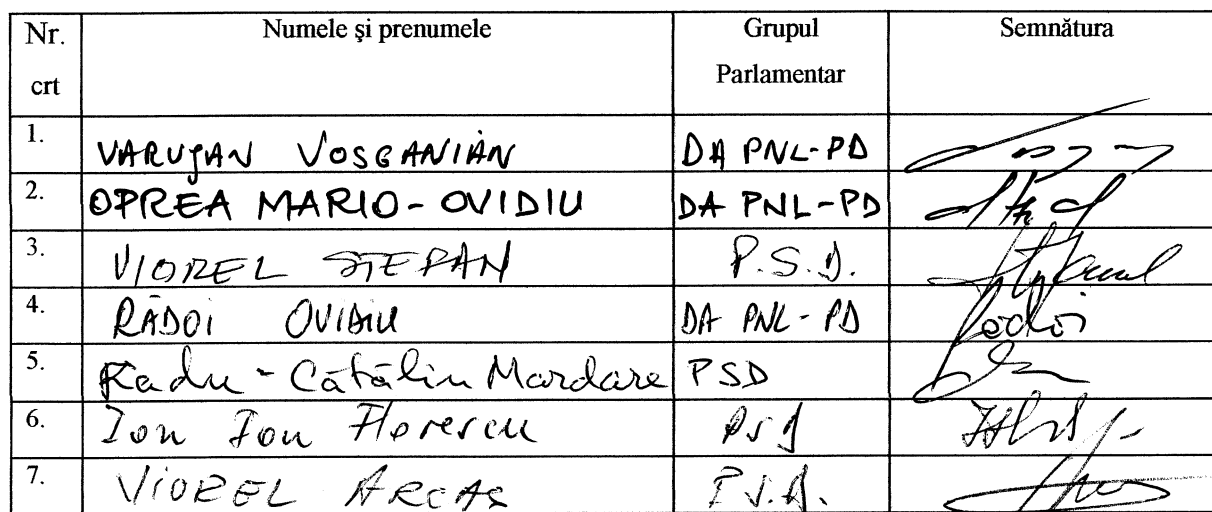 Nr. crt Numele şi prenumele Grupul Parlamentar Semnătura
1. VARUJAN VOSGANIAN DA PNL-PD
2. OPREA MARIO-OVIDIU DA PNL-PD
3. VIOREL ŞTEFAN P.S.D.
4. RĂDOI OVIDIU DA PNL-PD
5. Radu-Cătălin Mardare PSD
6. Ion Ion Florescu PSD
7. VIOREL ARCAŞ P.S.D.